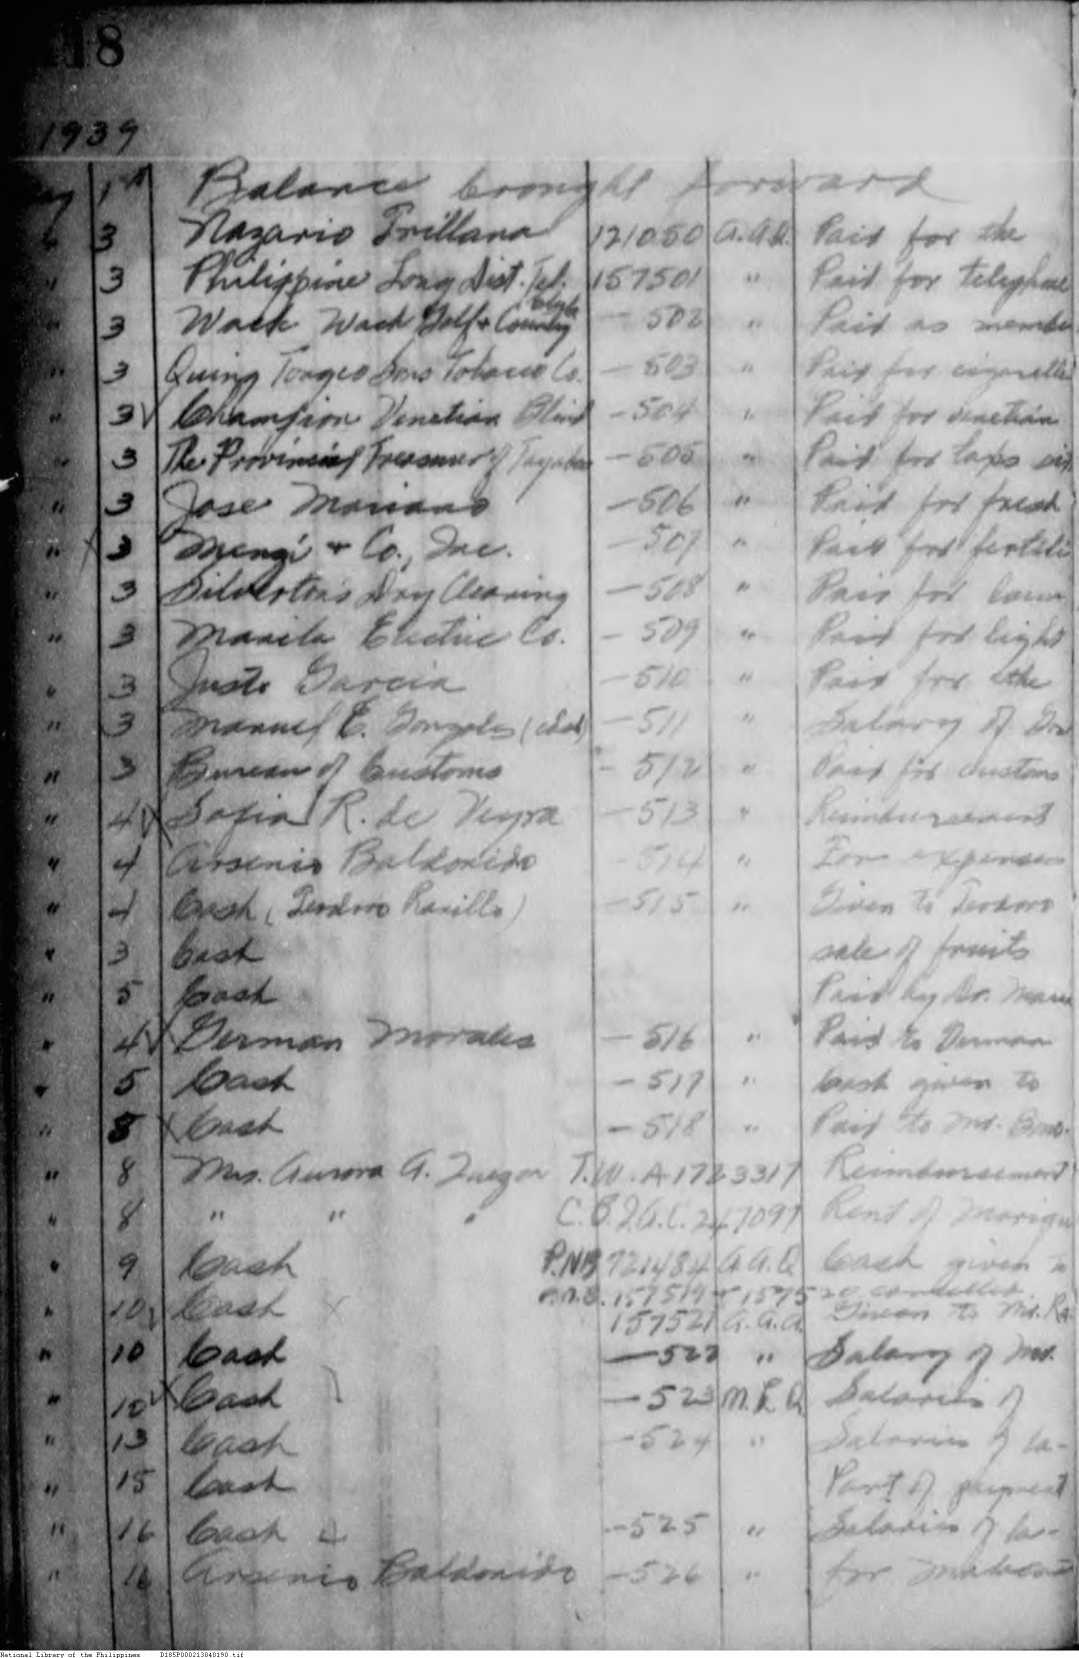 18
1939
1st Balance brought forward
3 Nazario Trillana 121050 A.A.Q. Paid for the
" 3 Philippine Long Dist. Tel. 157501 " Paid for telephone
" 3 Wack Wack Golf & Country Club - 502 " Paid as membe
" 3 Quing Tongco Sons Tobacco Co. - 503 " Paid for cigarette
" 3 Champion Venetian Blind - 504 " Paid for venetian
" 3 The Provincial Treasurer of Tayabas - 505 " Paid for
" 3 Jose Mariano - 506 " Paid for fresh
" 3 Menzi & Co., Inc. - 507 " Paid for fertili
" 3 Silverton's Dry Cleaning - 508 " Paid for laun
" 3 Manila Electric Co. - 509 " Paid for light
" 3 Justo Garcia - 510 " Paid for the
" 3 Manuel E. Gonzales - 511 " Salary of
" 3 Bureau of Customs - 512 " Paid for customs
" 4 Sofia R. de Veyra - 513 " Reimbursement
" 4 Arsenio Baldonido - 514 " For expenses
" 4 Cash (Teodoro Ranillo) - 515 " Given to Teodoro
" 3 Cash sale of fruits
" 5 Cash Paid by Dr.
" 4 German Morales - 516 " Paid to German
" 5 Cash - 517 " Cash given to
" 8 Cash - 518 " Paid to Mr.
" 8 Mrs. Aurora A. Quezon T.W.A. 1723317 Reimbursement
" 8 " " " 247097 Rent of
" 9 Cash P.N.B 721484 A.A.Q Cash given to
157519 & 157520 cancelled.
" 10 Cash 157521 A.A.Q. Given to Mr.
" 10 Cash - 522 " Salary of Mr.
" 10 Cash - 523 M.L.Q. Salaries of
" 13 Cash - 524 " Salaries of la-
" 15 Cash Part of payment
" 16 Cash - 525 " Salaries of la-
" 16 Arsenio Baldonido - 526 " for
National Library of the Philippines D185P000213040190.tif